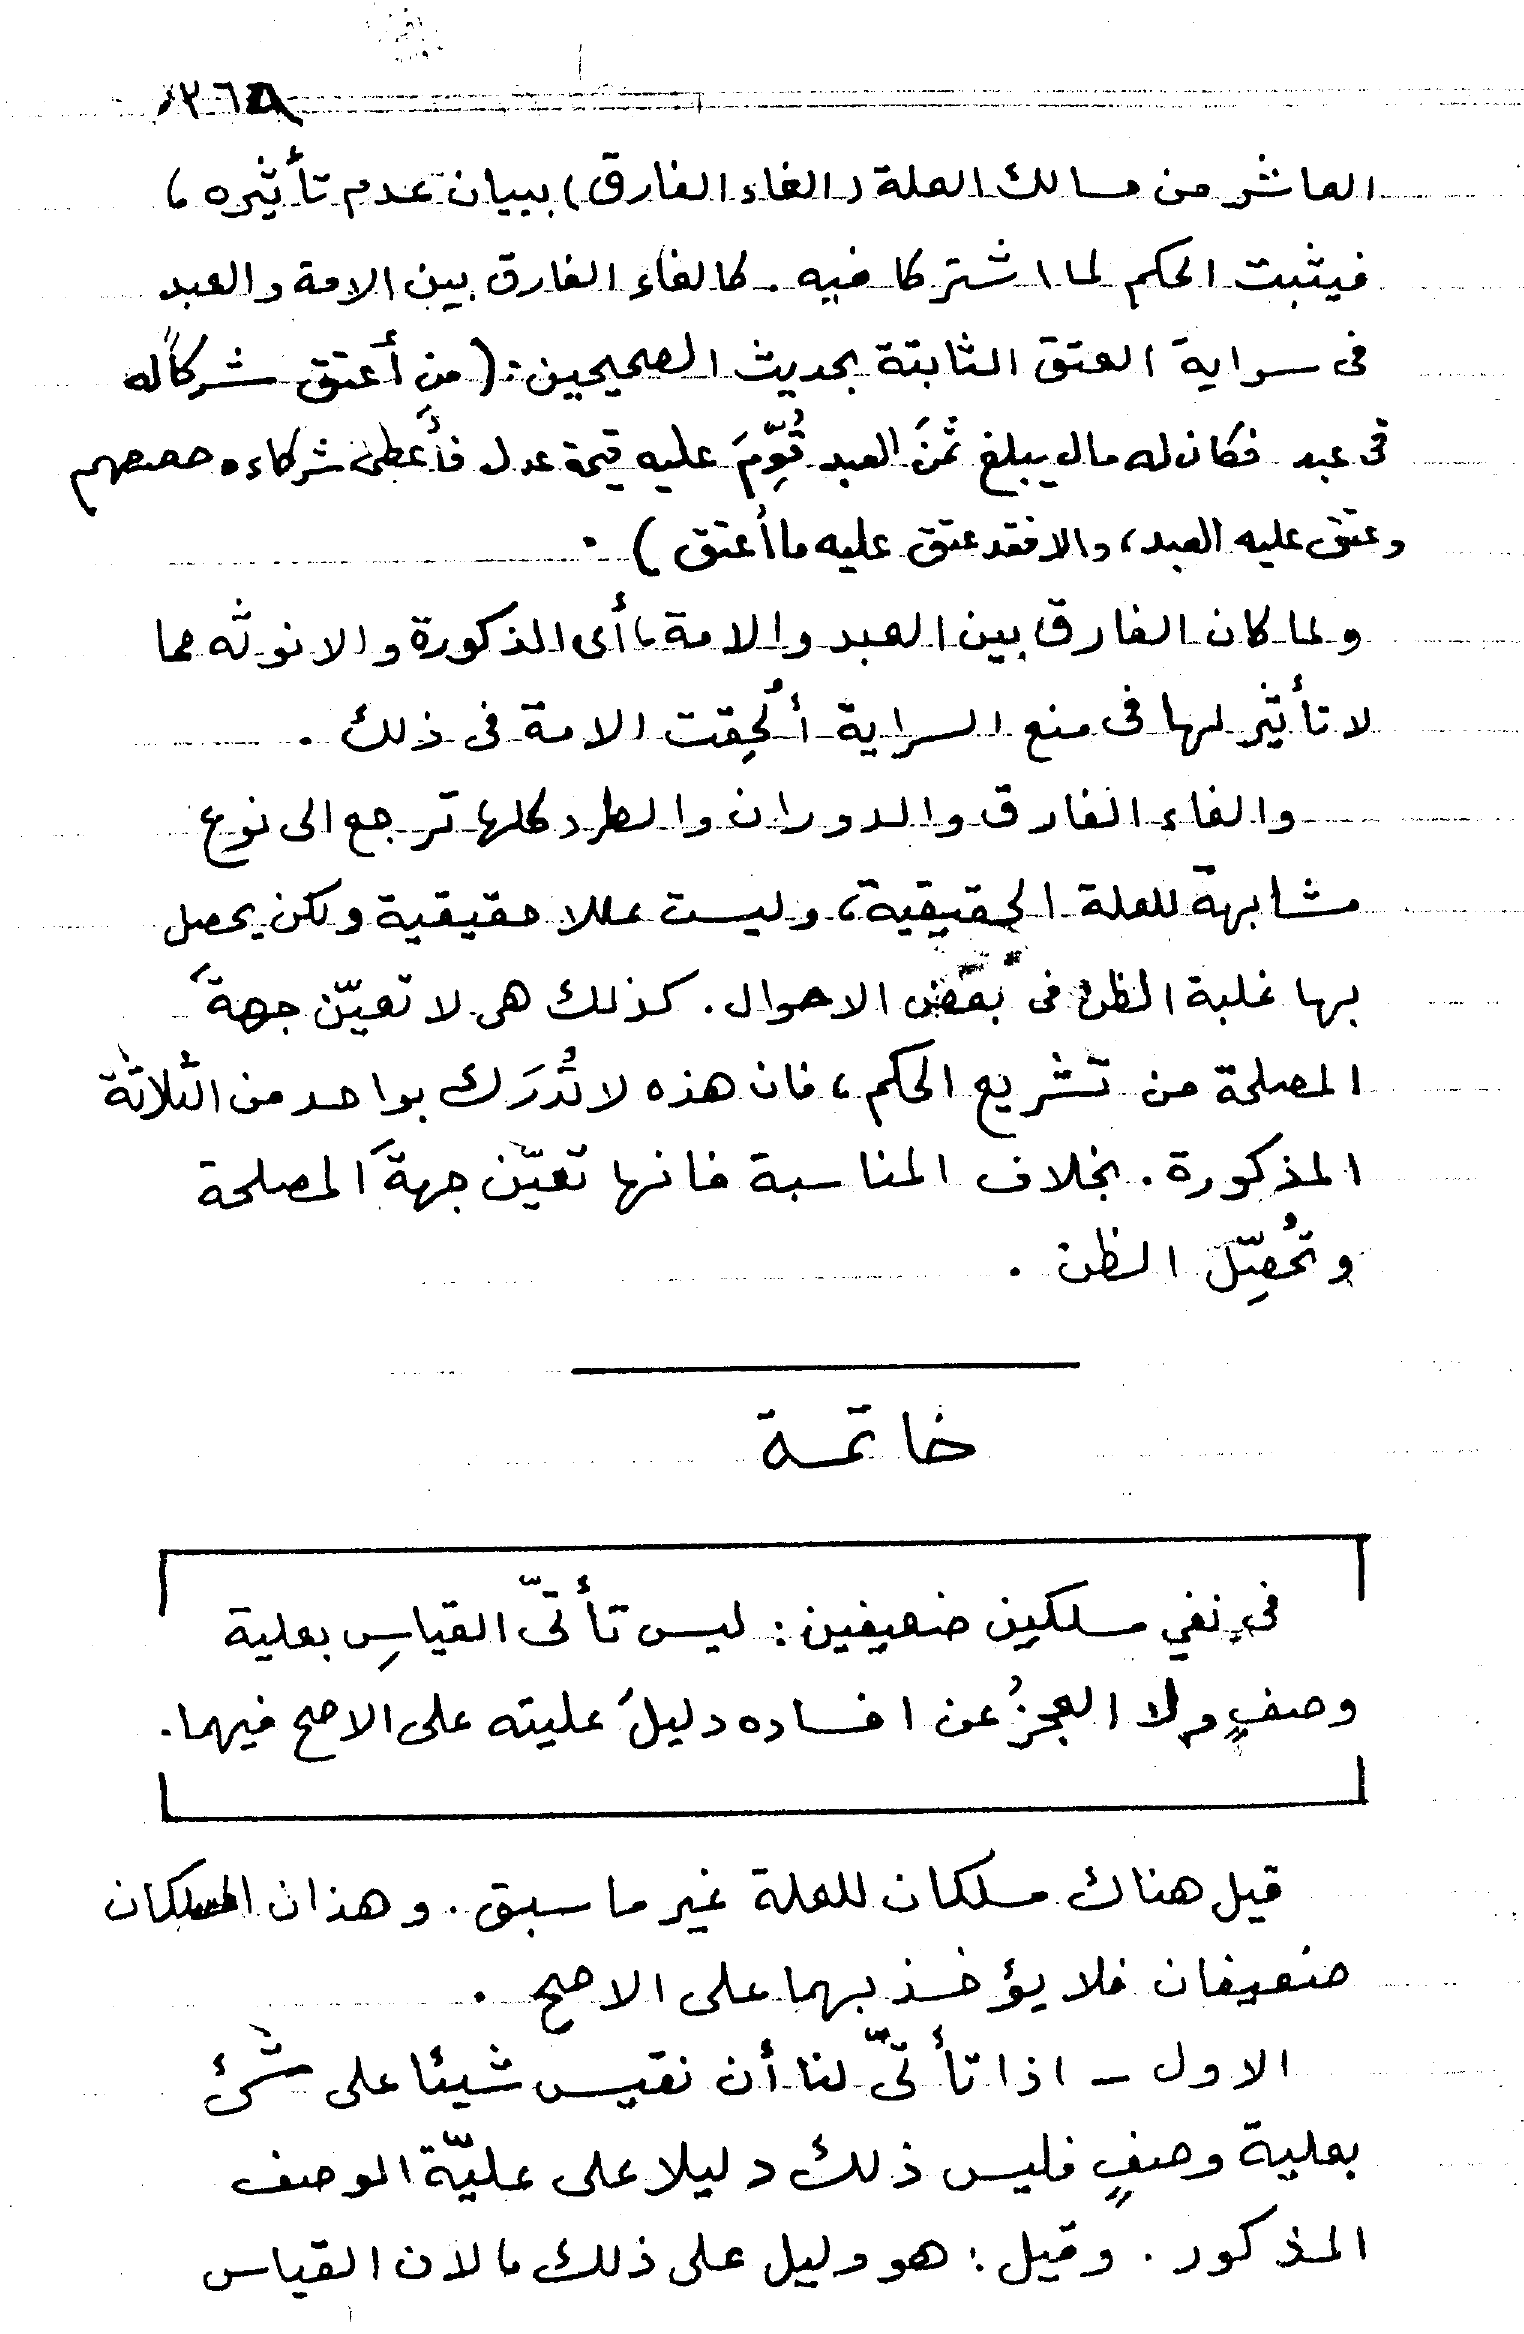 العاشر من مسالك العلة (الغاء الفارق) ببيان عدم تأثيره ،
فيثبت الحكم لما اشتركا فيه . كالغاء الفارق بين الامة والعبد
فى سراية العتق الثابتة بحديث الصحيحين : (من أعتق شركاً له
فى عبد فكان له مال يبلغ ثمنَ العبد قُوِّمَ عليه قيمة عدل فأُعطى شركاءه حصصهم
وعتق عليه العبد، والا فقد عتق عليه ما أعتق) .
ولما كان الفارق بين العبد والامة ، أى الذكورة والانوثه مما
لا تأثير لها فى منع السراية أُلحِقت الامة فى ذلك .
والغاء الفارق والدوران والطرد كلها ترجع الى نوع
مشابهة للعلة الحقيقية ، وليست عللا حقيقية ولكن يحصل
بها غلبة الظن فى بعض الاحوال . كذلك هى لا تعيّن جهةَ
المصلحة من تشريع الحكم ، فان هذه لا تُدرَك بواحد من الثلاثة
المذكورة . بخلاف المناسبة فانها تعيّن جهةَ المصلحة
وتُحصِّل الظن .
خاتمة
فى نفي مسلكين ضعيفين : ليس تأتّى القياسِ بعلية
وصفٍ ولا العجزُ عن افساده دليلَ عليته على الاصح فيهما .
قيل هناك مسلكان للعلة غير ما سبق . وهذان المسلكان
ضعيفان فلا يؤخذ بهما على الاصح .
الاول - اذا تأتّى لنا أن نقيس شيئا على شئ
بعلية وصفٍ فليس ذلك دليلا على عليّة الوصف
المذكور . وقيل : هو دليل على ذلك ، لان القياس